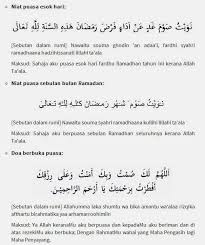 Niat puasa esok hari;
نَوَيْتُ صَوْمَ غَدٍ عَنْ أَدَاءِ فَرْضِ رَمَضَانَ هَذِهِ السَّنَةِ لِلَّهِ تَعَالَى
[Sebutan dalam rumi] Nawaitu souma ghodin 'an adaa'i, fardhi syahri
ramadhaana haadzihissanati lillahi ta'ala.
Maksud: Sahaja aku puasa esok hari fardhu Ramadhan tahun ini kerana Allah
Ta'ala.
Niat puasa sebulan bulan Ramadan:
نَوَيْتُ صَوْمَ شَهْرِ رَمَضَانَ كُلِّهِ لِلَّهِ تَعَالَى
[Sebutan dalam rumi] Nawaitu souma syahri ramadhaana kullihi lillahi ta'ala
Maksud: Sahaja aku berpuasa sebulan Ramadan seluruhnya kerana Allah
Ta'ala.
Doa berbuka puasa:
اَللّٰهُمَّ لَكَ صُمْتُ وَبِكَ آمَنْتُ وَعَلَى رِزْقِكَ
أَفْطَرْتُ بِرَحْمَتِكَ يَا أَرْحَمَ الرَّاحِمِيْنَ.
[Sebutan dalam rumi] Allahumma laka shumtu wa bika amantu wa'alaa rizqika
afthartu birahmatika yaa arhamarroohimiin
Maksud: Ya Allah keranaMu aku berpuasa dan kepadaMu aku beriman dan di
atas rezekiMu aku berbuka; Dengan RahmatMu wahai yang Maha Pengasih lagi
Maha Penyayang.